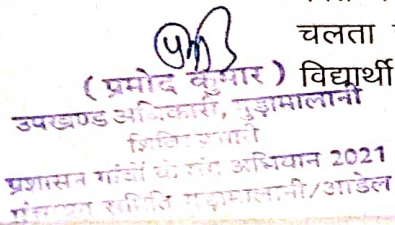 चलता
( प्रमोद कुमार ) विद्यार्थी
उपखण्ड अधिकारी, गुड़ामालानी
शिविर प्रभारी
प्रशासन गांवों के संग अभियान 2021
पंचायत समिति गुड़ामालानी/आडेल